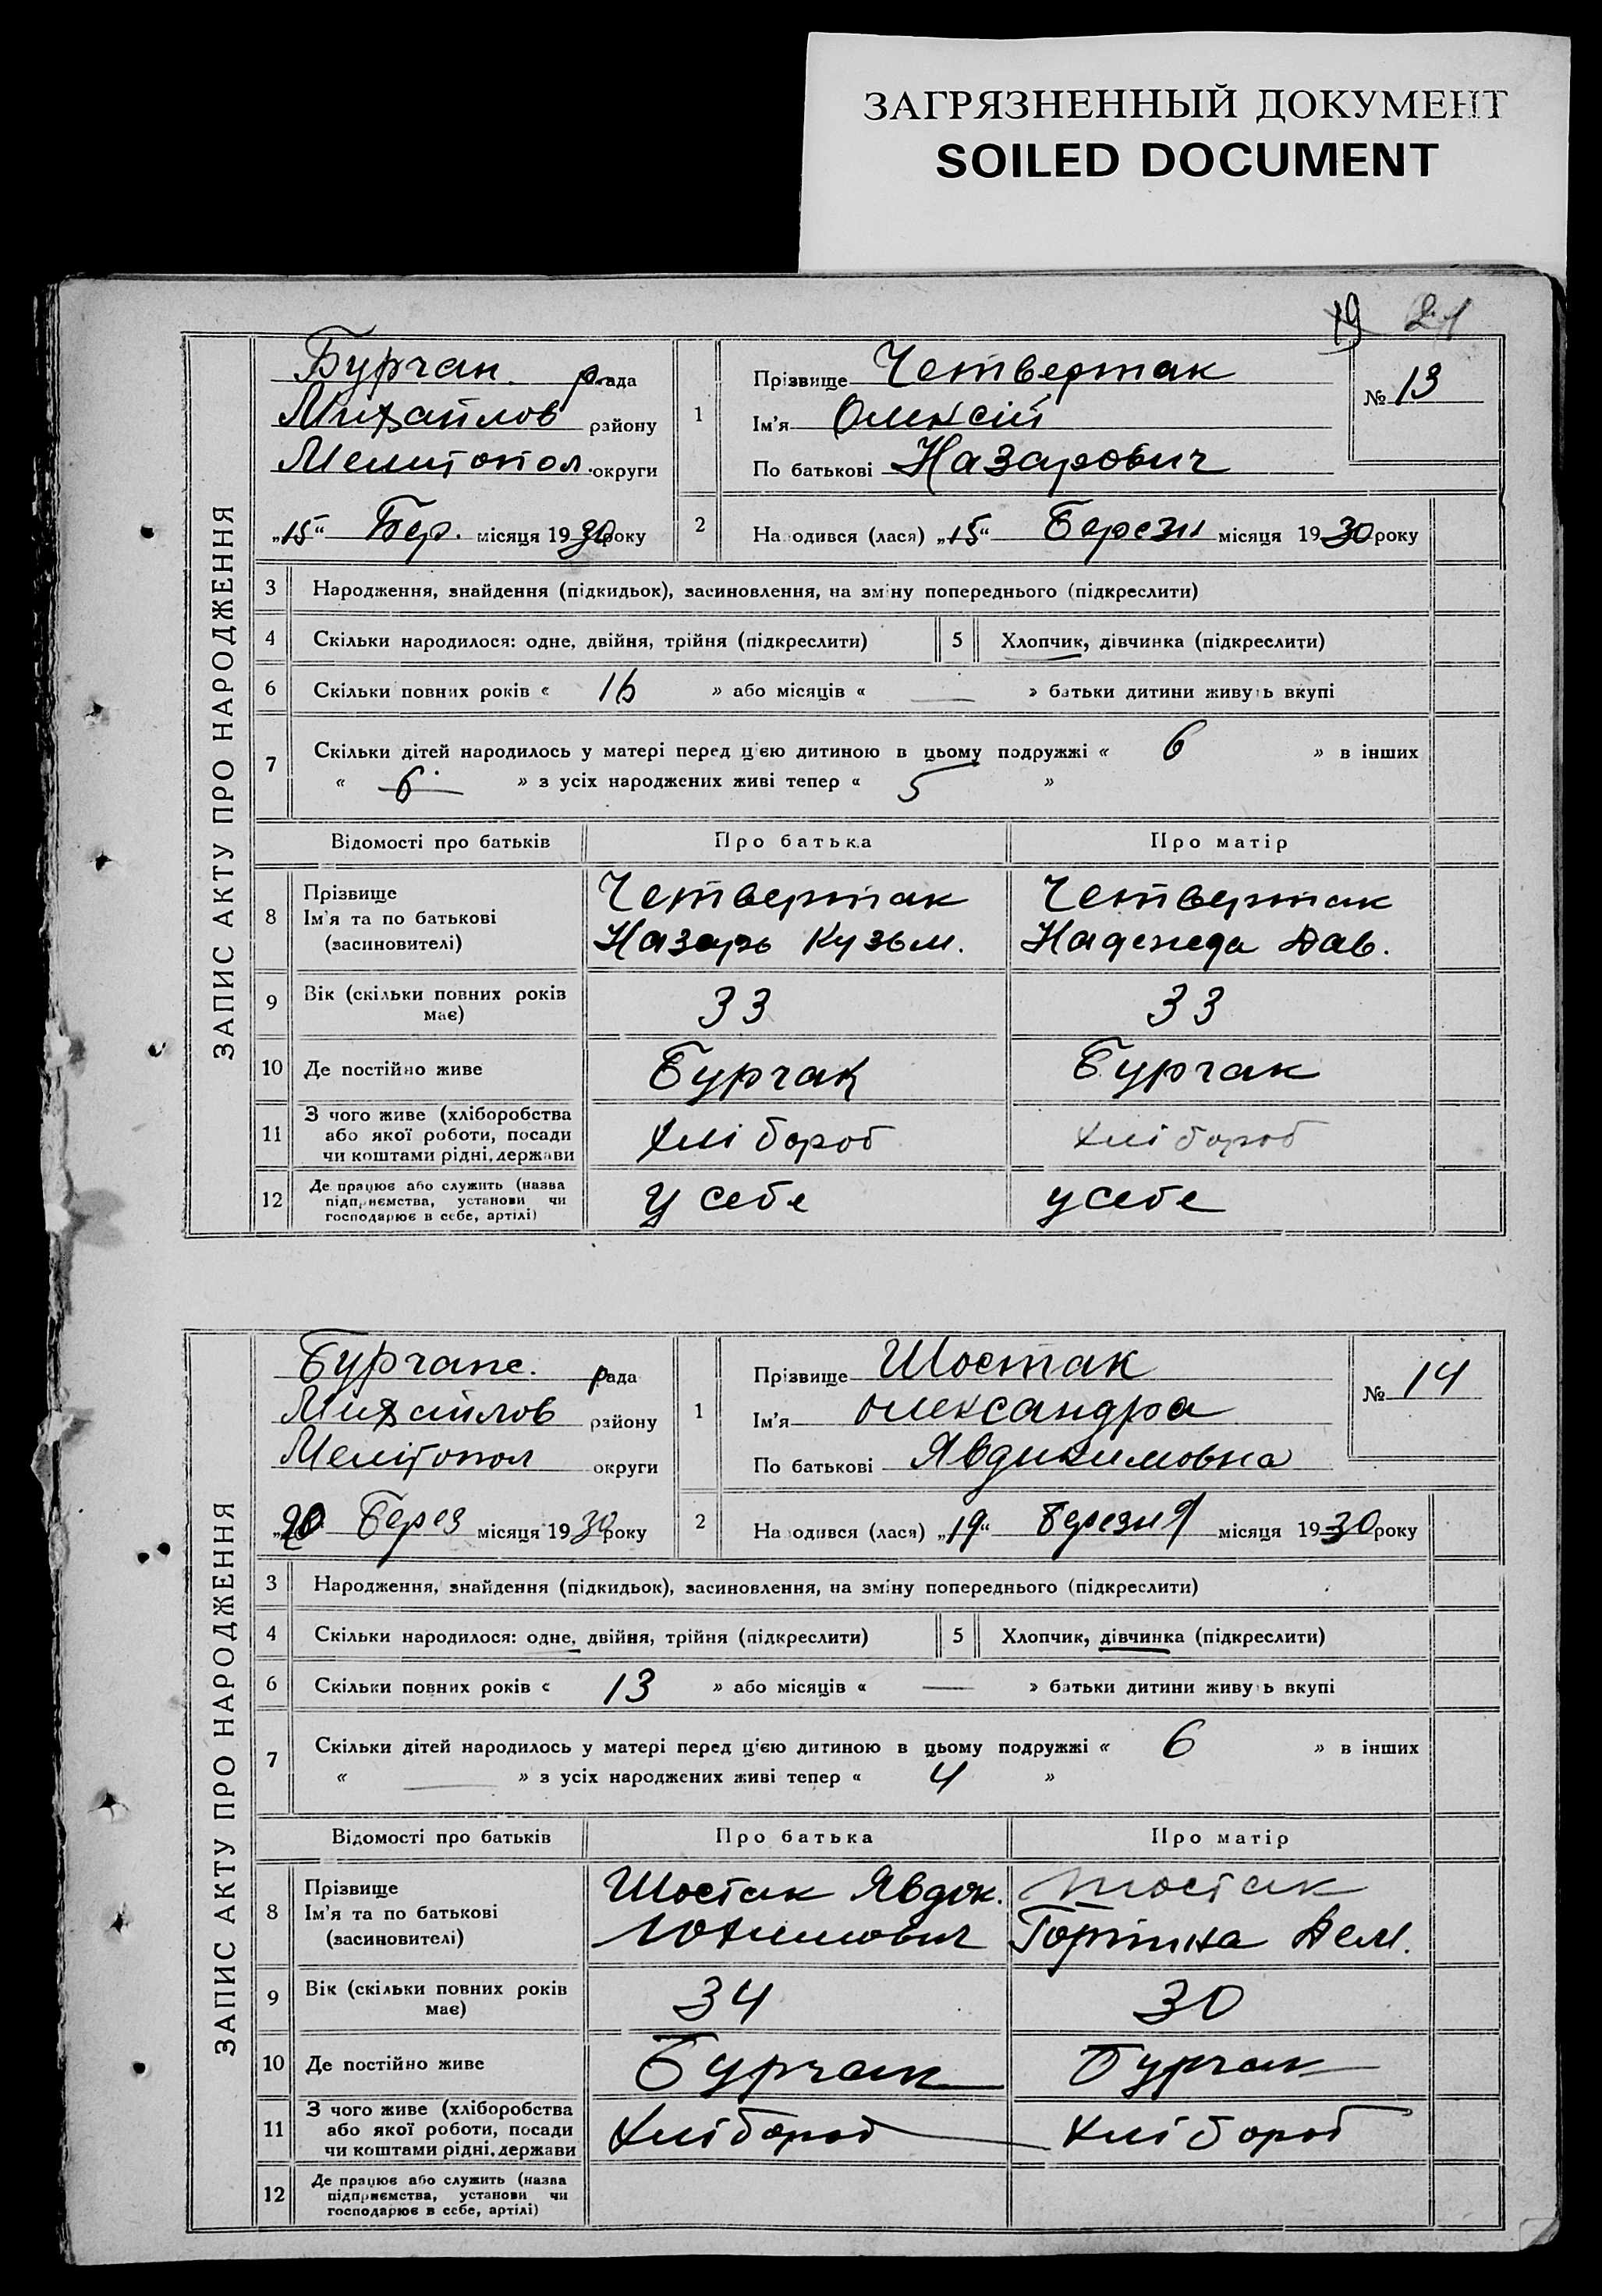 ЗАГРЯЗНЕННЫЙ ДОКУМЕНТ
SOILED DOCUMENT
19 21
ЗАПИС АКТУ ПРО НАРОДЖЕННЯ
Бурчан. рада
Михайлов району
Мелитопол. округи
„15“ Бер. місяця 1930 року
1 Прізвище Четвертак
Ім'я Олексій
По батькові Назарович
№ 13
2 На одився (лася) „15“ Березн місяця 1930 року
3 Народження, знайдення (підкидьок), засиновлення, на зміну попереднього (підкреслити)
4 Скільки народилося: одне, двійня, трійня (підкреслити) 5 Хлопчик, дівчинка (підкреслити)
6 Скільки повних років « 16 » або місяців « — » батьки дитини живуть вкупі
7 Скільки дітей народилось у матері перед цією дитиною в цьому подружжі « 6 » в інших
« 6 » з усіх народжених живі тепер « 5 »
Відомості про батьків Про батька Про матір
8 Прізвище Четвертак Четвертак
Ім'я та по батькові Назарь Кузьм. Надежда Дав.
(засиновителі)
9 Вік (скільки повних років має) 33 33
10 Де постійно живе Бурчак Бурчак
11 З чого живе (хліборобства
або якої роботи, посади Хлібороб Хлібороб
чи коштами рідні, держави
12 Де працює або служить (назва
підприємства, установи чи У себе у себе
господарює в себе, артілі)
ЗАПИС АКТУ ПРО НАРОДЖЕННЯ
Бурчанс. рада
Михайлов району
Мелітопол округи
„20 Берез місяця 1930 року
1 Прізвище Шостак
Ім'я Олександра
По батькові Явдикимовна
№ 14
2 На одився (лася) „19“ Березня місяця 1930 року
3 Народження, знайдення (підкидьок), засиновлення, на зміну попереднього (підкреслити)
4 Скільки народилося: одне, двійня, трійня (підкреслити) 5 Хлопчик, дівчинка (підкреслити)
6 Скільки повних років « 13 » або місяців « — » батьки дитини живуть вкупі
7 Скільки дітей народилось у матері перед цією дитиною в цьому подружжі « 6 » в інших
« — » з усіх народжених живі тепер « 4 »
Відомості про батьків Про батька Про матір
8 Прізвище Шостак Явдок. Шостак
Ім'я та по батькові Дем.
(засиновителі)
9 Вік (скільки повних років має) 34 30
10 Де постійно живе Бурчак Бурчак
11 З чого живе (хліборобства
або якої роботи, посади Хлібороб Хлібороб
чи коштами рідні, держави
12 Де працює або служить (назва
підприємства, установи чи
господарює в себе, артілі)